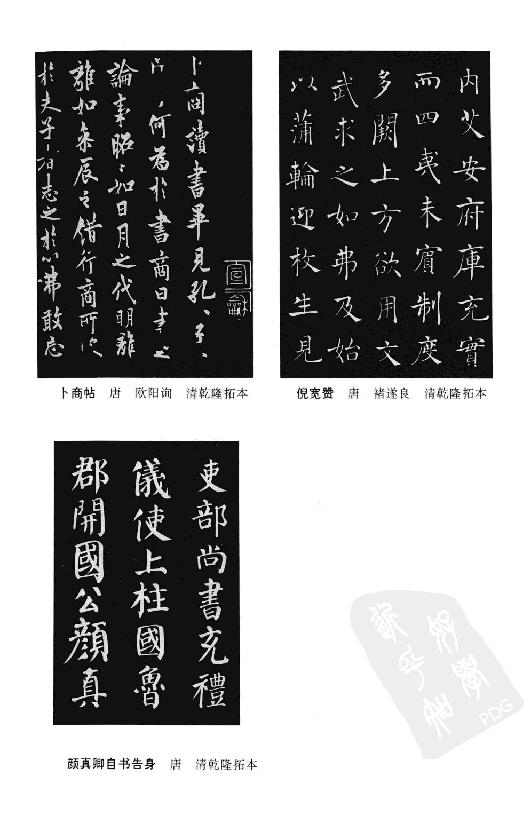 卜商讀書畢見孔、子、
何爲於書商曰書之
論事昭、如日月之代明離
離如參辰之錯行商所
於夫子、者志之於心弗敢忘
宣龢
卜商帖 唐 欧阳询 清乾隆拓本
内艾安府庫充實
而四夷未賓制度
多闕上方欲用文
武求之如弗及始
以蒲輪迎枚生見
倪宽赞 唐 褚遂良 清乾隆拓本
吏部尚書充禮
儀使上柱國魯
郡開國公顔真
颜真卿自书告身 唐 清乾隆拓本
好学
PDG